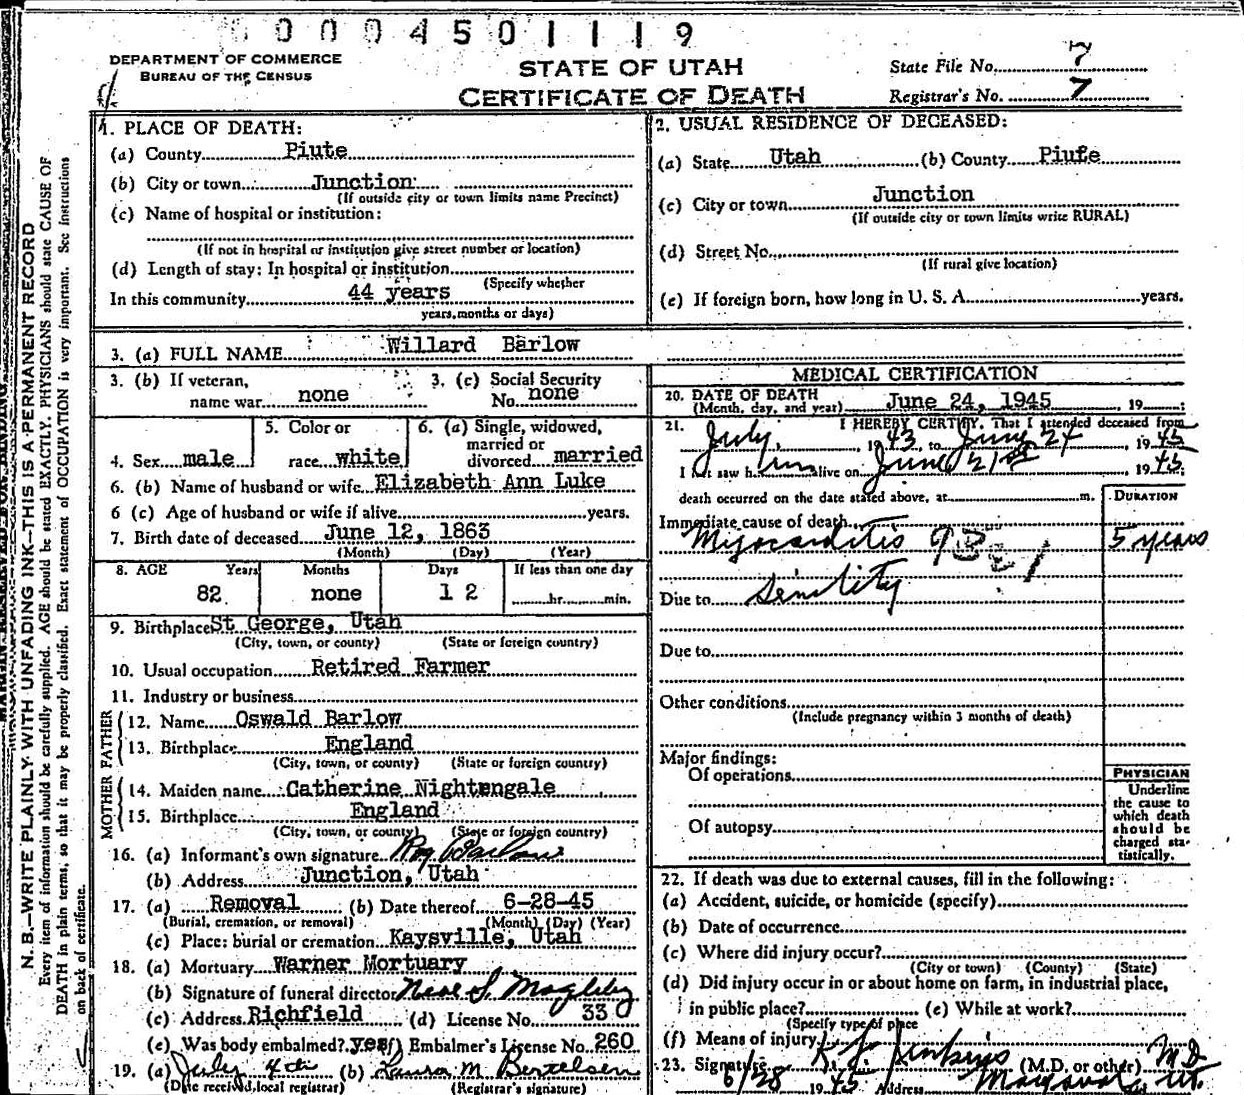 0004501119
DEPARTMENT OF COMMERCE
BUREAU OF THE CENSUS
STATE OF UTAH
CERTIFICATE OF DEATH
State File No. 7
Registrar's No. 7
N. B.—WRITE PLAINLY WITH UNFADING INK—THIS IS A PERMANENT RECORD
Every item of information should be carefully supplied. AGE should be stated EXACTLY. PHYSICIANS should state CAUSE OF
DEATH in plain terms, so that it may be properly classified. Exact statement of OCCUPATION is very important. See instructions
on back of certificate.
1. PLACE OF DEATH:
(a) County Piute
(b) City or town Junction
(If outside city or town limits name Precinct)
(c) Name of hospital or institution:
(If not in hospital or institution give street number or location)
(d) Length of stay: In hospital or institution
(Specify whether
In this community 44 years
years, months or days)
2. USUAL RESIDENCE OF DECEASED:
(a) State Utah (b) County Piute
(c) City or town Junction
(If outside city or town limits write RURAL)
(d) Street No.
(If rural give location)
(e) If foreign born, how long in U. S. A. years.
3. (a) FULL NAME Willard Barlow
3. (b) If veteran, name war none
3. (c) Social Security No. none
4. Sex male
5. Color or race white
6. (a) Single, widowed, married or divorced married
6. (b) Name of husband or wife Elizabeth Ann Luke
6 (c) Age of husband or wife if alive years.
7. Birth date of deceased June 12, 1863
(Month) (Day) (Year)
8. AGE Years Months Days If less than one day
82 none 12 hr. min.
9. Birthplace St George, Utah
(City, town, or county) (State or foreign country)
10. Usual occupation Retired Farmer
11. Industry or business
FATHER
12. Name Oswald Barlow
13. Birthplace England
(City, town, or county) (State or foreign country)
MOTHER
14. Maiden name Catherine Nightengale
15. Birthplace England
(City, town, or county) (State or foreign country)
16. (a) Informant's own signature Roy Barlow
(b) Address Junction, Utah
17. (a) Removal (b) Date thereof 6-28-45
(Burial, cremation, or removal) (Month) (Day) (Year)
(c) Place: burial or cremation Kaysville, Utah
18. (a) Mortuary Warner Mortuary
(b) Signature of funeral director Neal S. Magleby
(c) Address Richfield (d) License No. 330
(e) Was body embalmed? yes (f) Embalmer's License No. 260
19. (a) July 4th (b) Laura M Bertelsen
(Date received, local registrar) (Registrar's signature)
MEDICAL CERTIFICATION
20. DATE OF DEATH
(Month, day, and year) June 24, 1945, 19 :
21. I HEREBY CERTIFY, That I attended deceased from
July, 1943, to June 24 1945
I last saw him alive on June 21st 1945
death occurred on the date stated above, at m.
DURATION
Immediate cause of death
Myocarditis 5 years
Due to Senility
Due to
Other conditions
(Include pregnancy within 3 months of death)
Major findings:
Of operations
Of autopsy
PHYSICIAN
Underline
the cause to
which death
should be
charged sta-
tistically.
22. If death was due to external causes, fill in the following:
(a) Accident, suicide, or homicide (specify)
(b) Date of occurrence
(c) Where did injury occur?
(City or town) (County) (State)
(d) Did injury occur in or about home on farm, in industrial place,
in public place? (e) While at work?
(Specify type of place
(f) Means of injury
23. Signature Jenkins (M.D. or other) M D
6/28 1945 Address Marysvale, Ut.